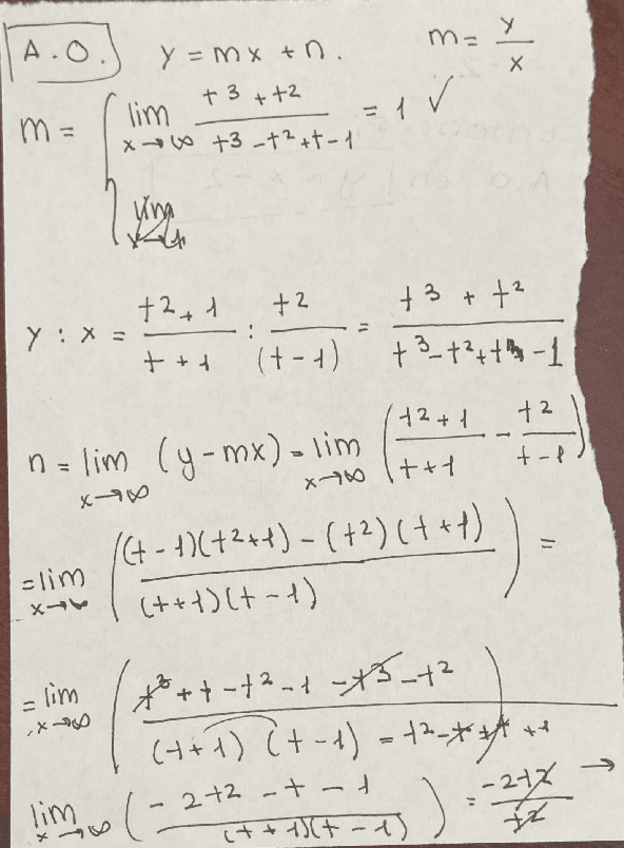 A.O. y = mx + n. m = y/x
m = { lim x→∞ (t3 + t2)/(t3 - t² + t - 1) = 1 ✓
y : x = (t2 + 1)/(t + 1) : t2/(t - 1) = (t3 + t2)/(t3 - t2 + t - 1)
n = lim x→∞ (y - mx) = lim x→∞ ((t2 + 1)/(t + 1) - t2/(t - 1))
= lim x→∞ (((t - 1)(t2 + 1) - (t2)(t + 1))/((t + 1)(t - 1))) =
= lim x→∞ ((t3 + t - t2 - 1 - t3 - t2)/((t + 1)(t - 1) = t2 - t + t + 1
lim x→∞ ((-2t2 - t - 1)/((t + 1)(t - 1))) = -2t2/t2 →